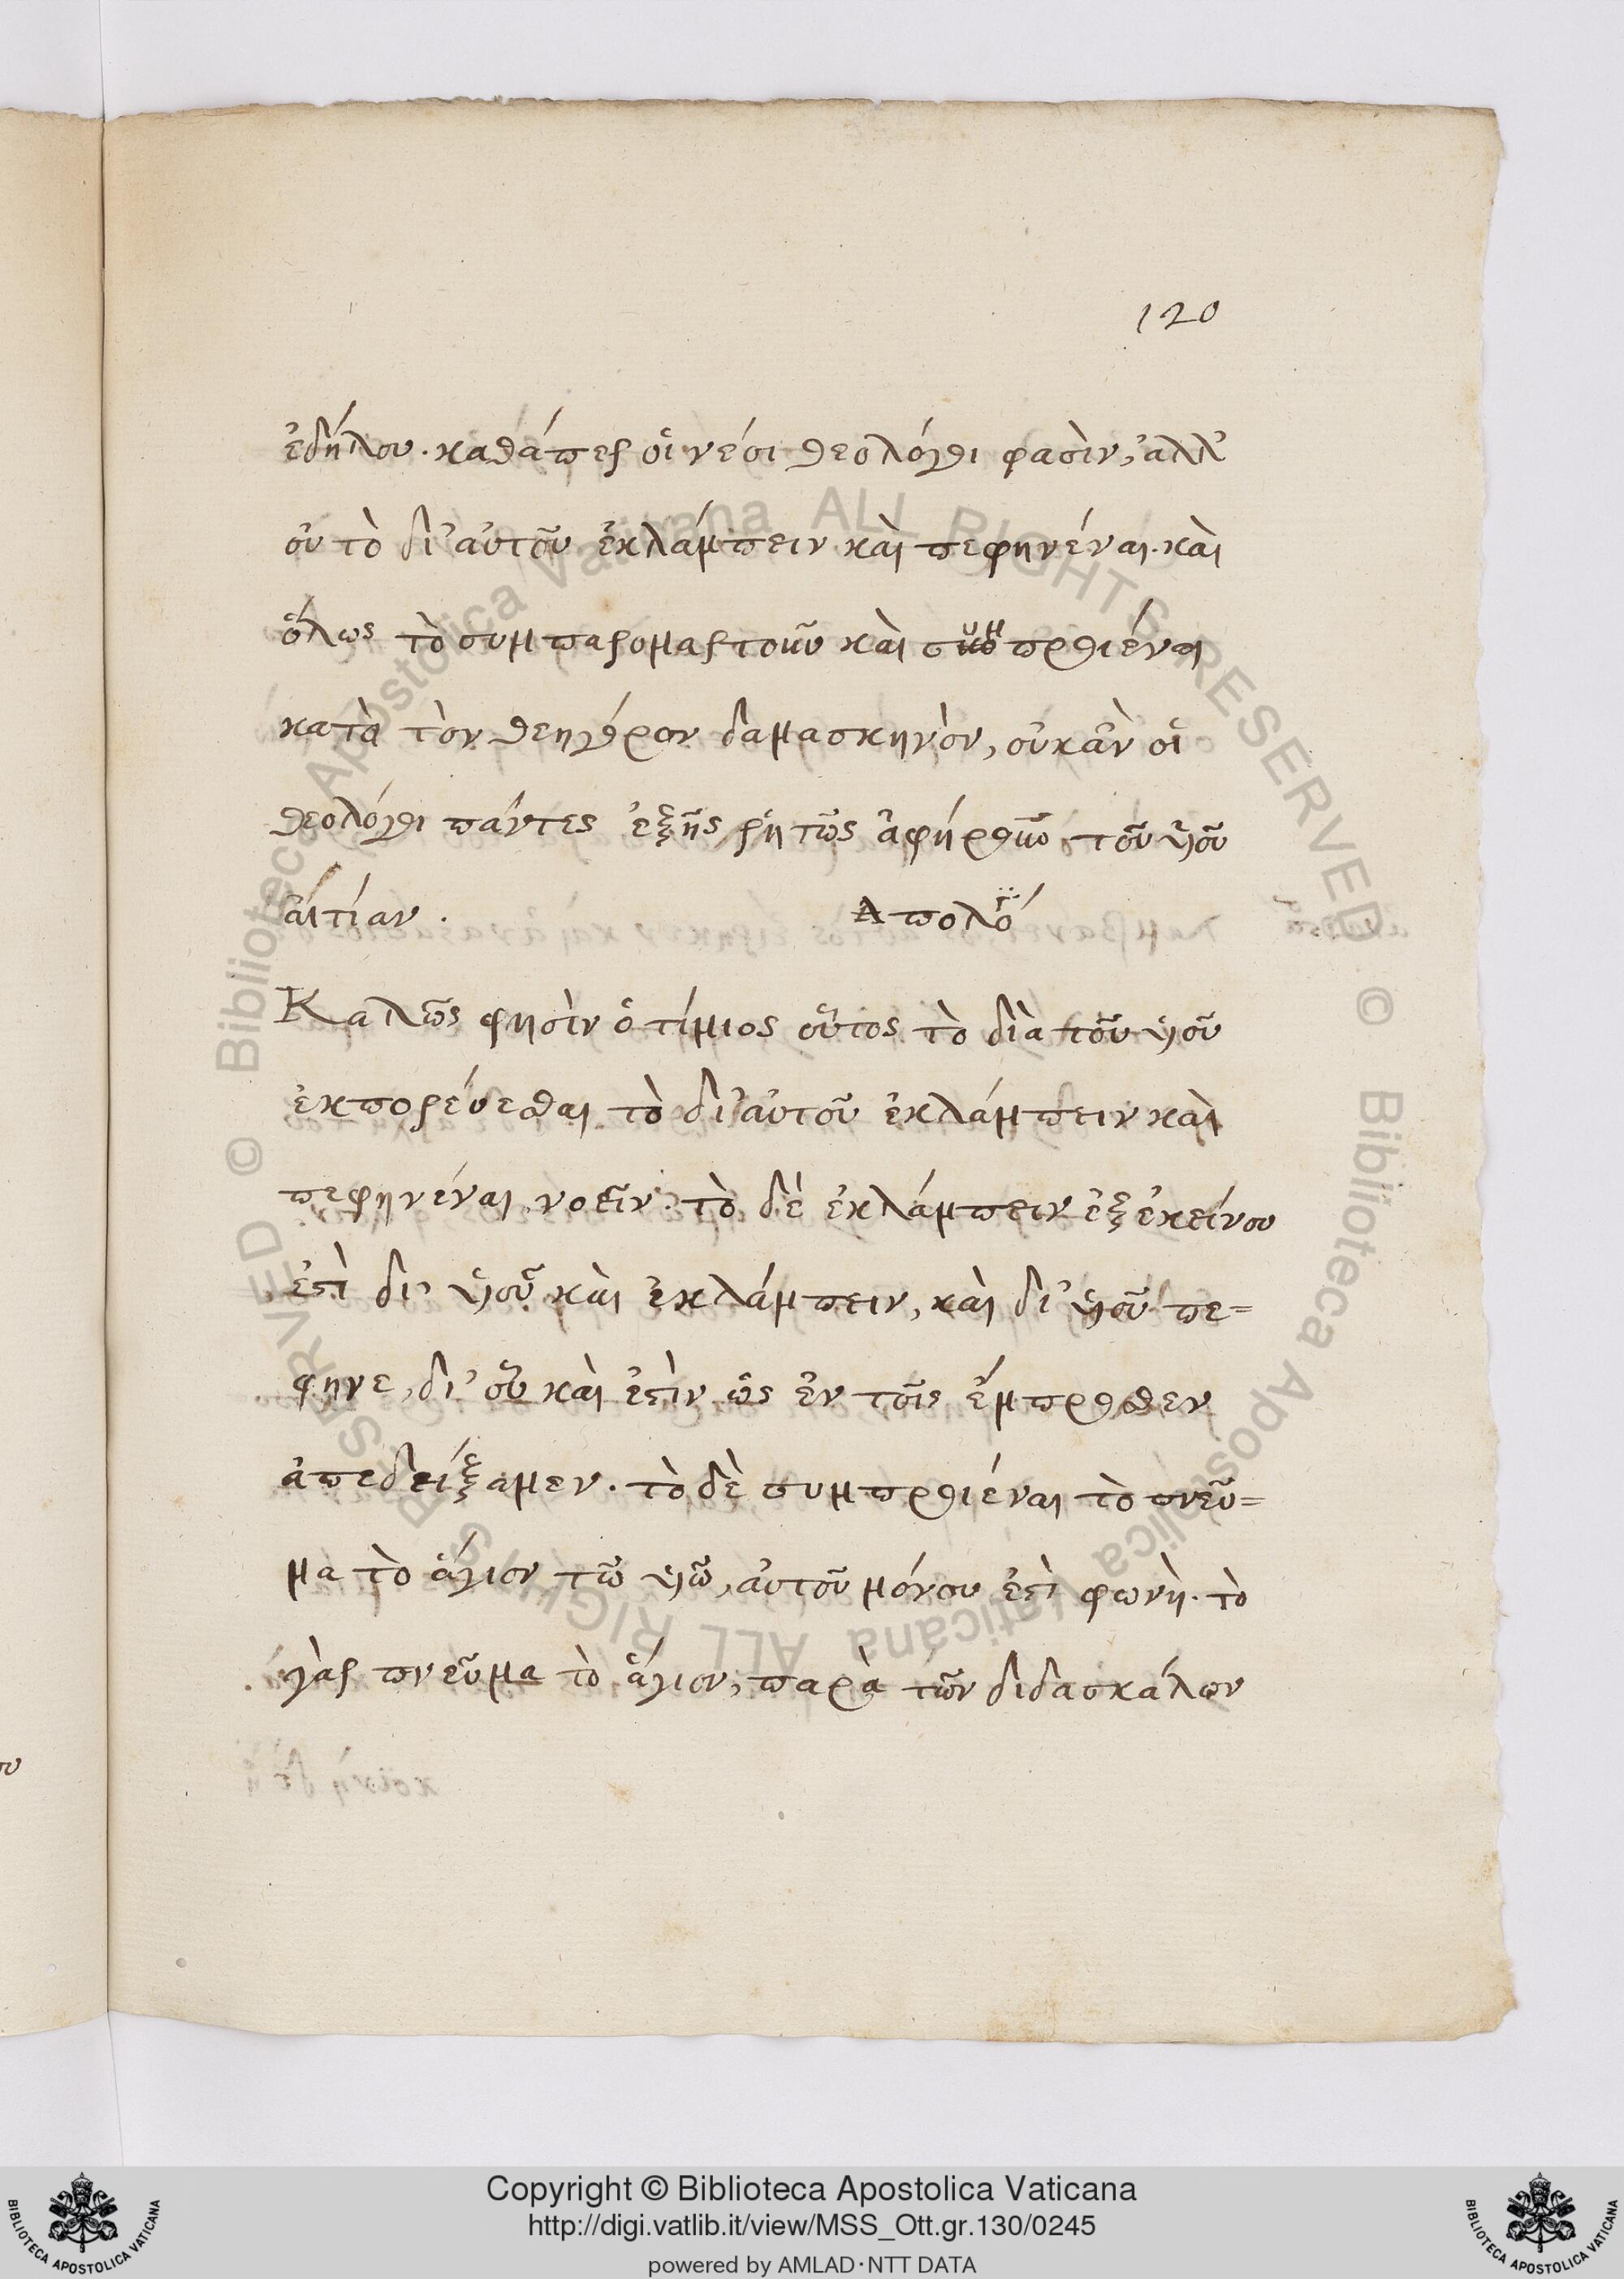 120
ἐδήλου. καθάπερ οἱ νέοι θεολόγοι φασὶν, ἀλλ'
οὐ τὸ δι' αὐτοῦ ἐκλάμπειν καὶ πεφηνέναι. καὶ
ὅλως τὸ συμπαρομαρτοῦν καὶ συμπροϊέναι
κατὰ τὸν θεηγόρον δαμασκηνὸν, οὐκ ἂν οἱ
θεολόγοι πάντες ἑξῆς ῥητῶς ἀφήρουν τοῦ υἱοῦ
αἰτίαν. Ἀπολο
Καλῶς φησὶν ὁ τίμιος οὗτος τὸ διὰ τοῦ υἱοῦ
ἐκπορεύεσθαι τὸ δι' αὐτοῦ ἐκλάμπειν καὶ
πεφηνέναι νοεῖν. τὸ δὲ ἐκλάμπειν ἐξ ἐκείνου
ἐστὶ δι' υἱοῦ καὶ ἐκλάμπειν, καὶ δι' υἱοῦ πε=
φηνε, δι' οὗ καὶ ἐστὶν ὡς ἐν τοῖς ἔμπροσθεν
ἀπεδείξαμεν. τὸ δὲ συμπροϊέναι τὸ πνεῦ=
μα τὸ ἅγιον τῶ υἱῶ, αὐτοῦ μόνου ἐστὶ φωνὴ. τὸ
γὰρ πνεῦμα τὸ ἅγιον, παρὰ τῶν διδασκάλων
Copyright © Biblioteca Apostolica Vaticana
http://digi.vatlib.it/view/MSS_Ott.gr.130/0245
powered by AMLAD·NTT DATA